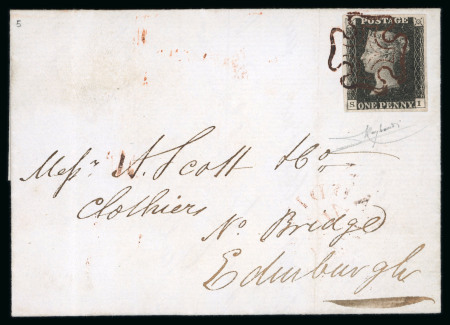 5
POSTAGE
S ONE PENNY I
Messrs A. Scott & Co
Clothiers
No Bridge
Edinburgh